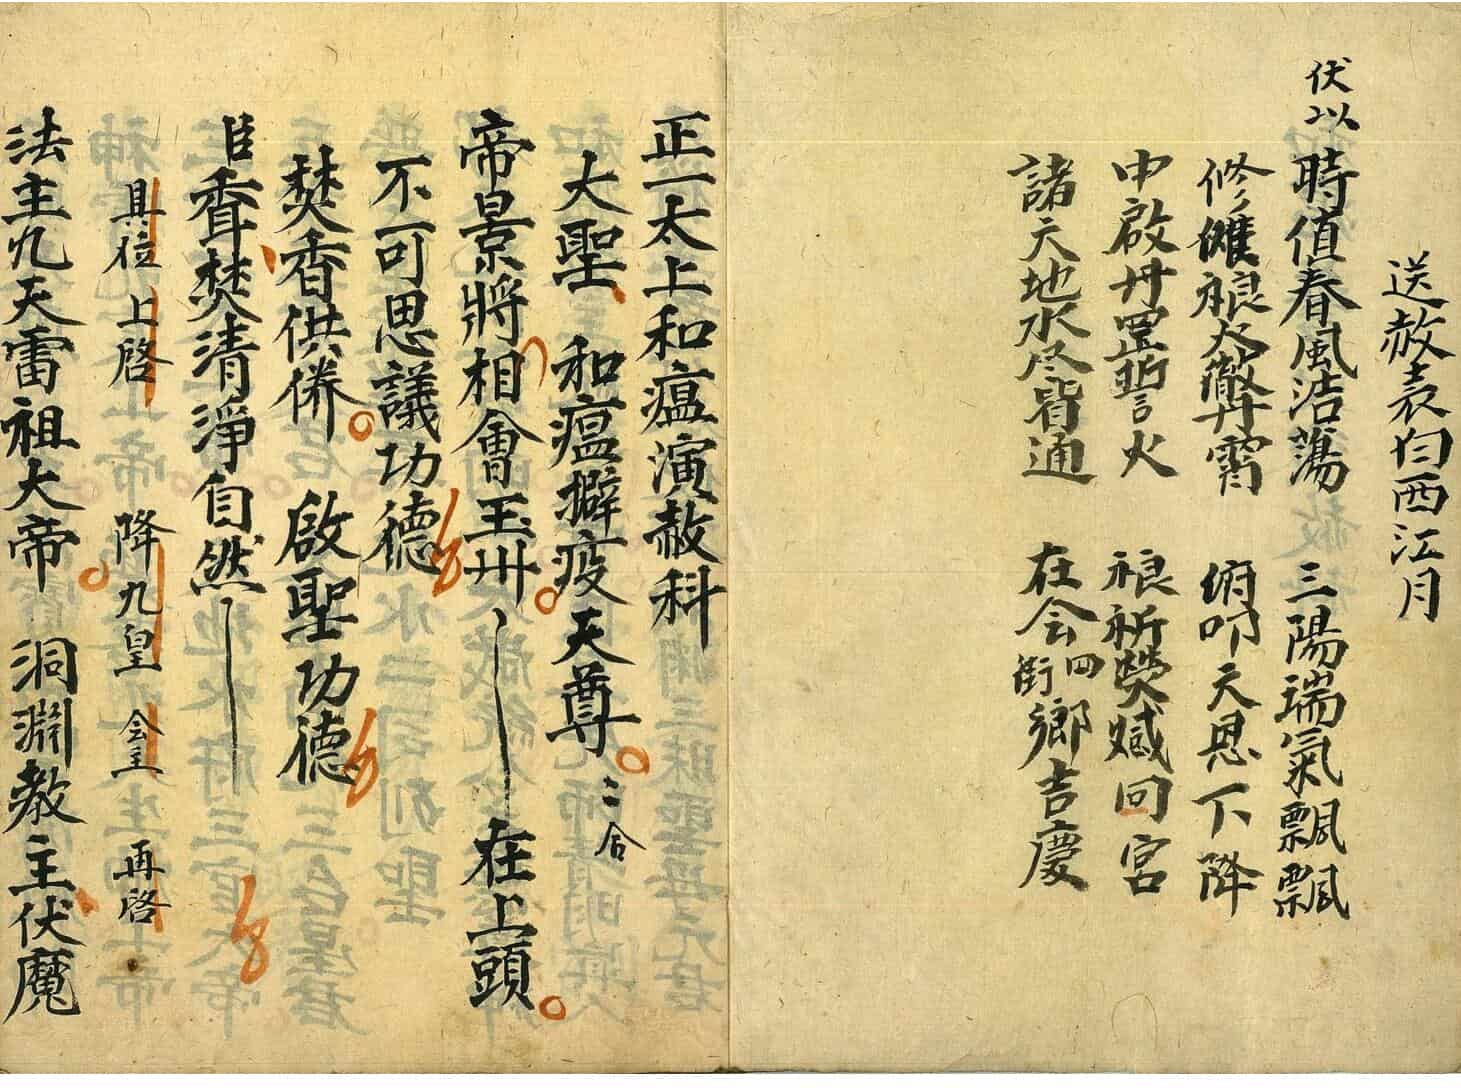 送赦表白西江月
伏以
時值春風浩蕩 三陽瑞氣飄飄
修 火 霄 俯叩天恩下降
申啟丹 火 祈 回宮
諸天地水尽皆通 在会四街鄉吉慶
正一太上和瘟演赦科
大聖 和瘟擗疫天尊 二合
帝景將相會玉州 在上頭
不可思議功德
焚香供俻 啟聖功德
臣 焚清淨自然
具位 上啓 降九皇 会主 再啓
法主九天雷祖大帝 洞淵教主伏魔